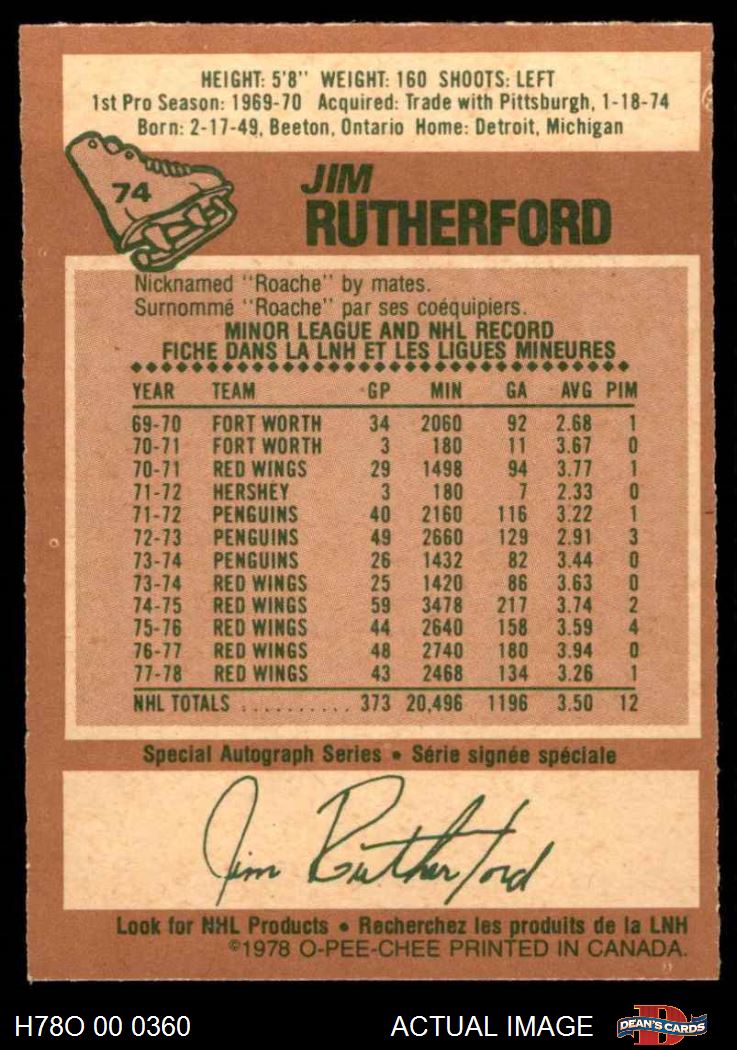 HEIGHT: 5'8" WEIGHT: 160 SHOOTS: LEFT
1st Pro Season: 1969-70 Acquired: Trade with Pittsburgh, 1-18-74
Born: 2-17-49, Beeton, Ontario Home: Detroit, Michigan
74
JIM
RUTHERFORD
Nicknamed "Roache" by mates.
Surnommé "Roache" par ses coéquipiers.
MINOR LEAGUE AND NHL RECORD
FICHE DANS LA LNH ET LES LIGUES MINEURES
YEAR TEAM GP MIN GA AVG PIM
69-70 FORT WORTH 34 2060 92 2.68 1
70-71 FORT WORTH 3 180 11 3.67 0
70-71 RED WINGS 29 1498 94 3.77 1
71-72 HERSHEY 3 180 7 2.33 0
71-72 PENGUINS 40 2160 116 3.22 1
72-73 PENGUINS 49 2660 129 2.91 3
73-74 PENGUINS 26 1432 82 3.44 0
73-74 RED WINGS 25 1420 86 3.63 0
74-75 RED WINGS 59 3478 217 3.74 2
75-76 RED WINGS 44 2640 158 3.59 4
76-77 RED WINGS 48 2740 180 3.94 0
77-78 RED WINGS 43 2468 134 3.26 1
NHL TOTALS .......... 373 20,496 1196 3.50 12
Special Autograph Series • Série signée spéciale
Jim Rutherford
Look for NHL Products • Recherchez les produits de la LNH
©1978 O-PEE-CHEE PRINTED IN CANADA.
H78O 00 0360 ACTUAL IMAGE D DEAN'S CARDS